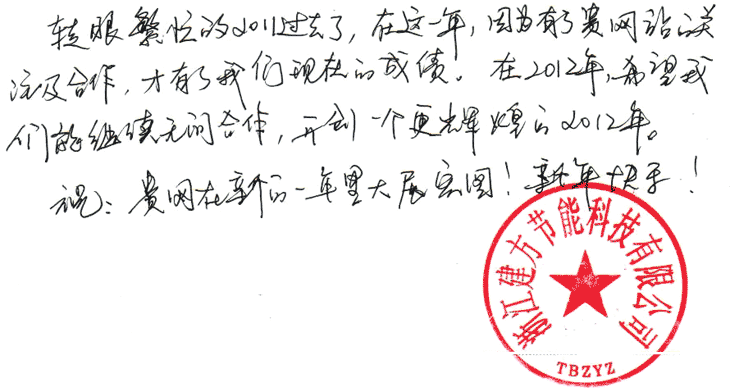 转眼繁忙的2011过去了，在这一年，因为有了贵网站的关
注及合作，才有了我们现在的成绩。在2012年，希望我
们能继续无间合作，开创一个更辉煌的2012年。
祝：贵网在新的一年里大展宏图！新年快乐！
浙江建方节能科技有限公司
TBZYZ